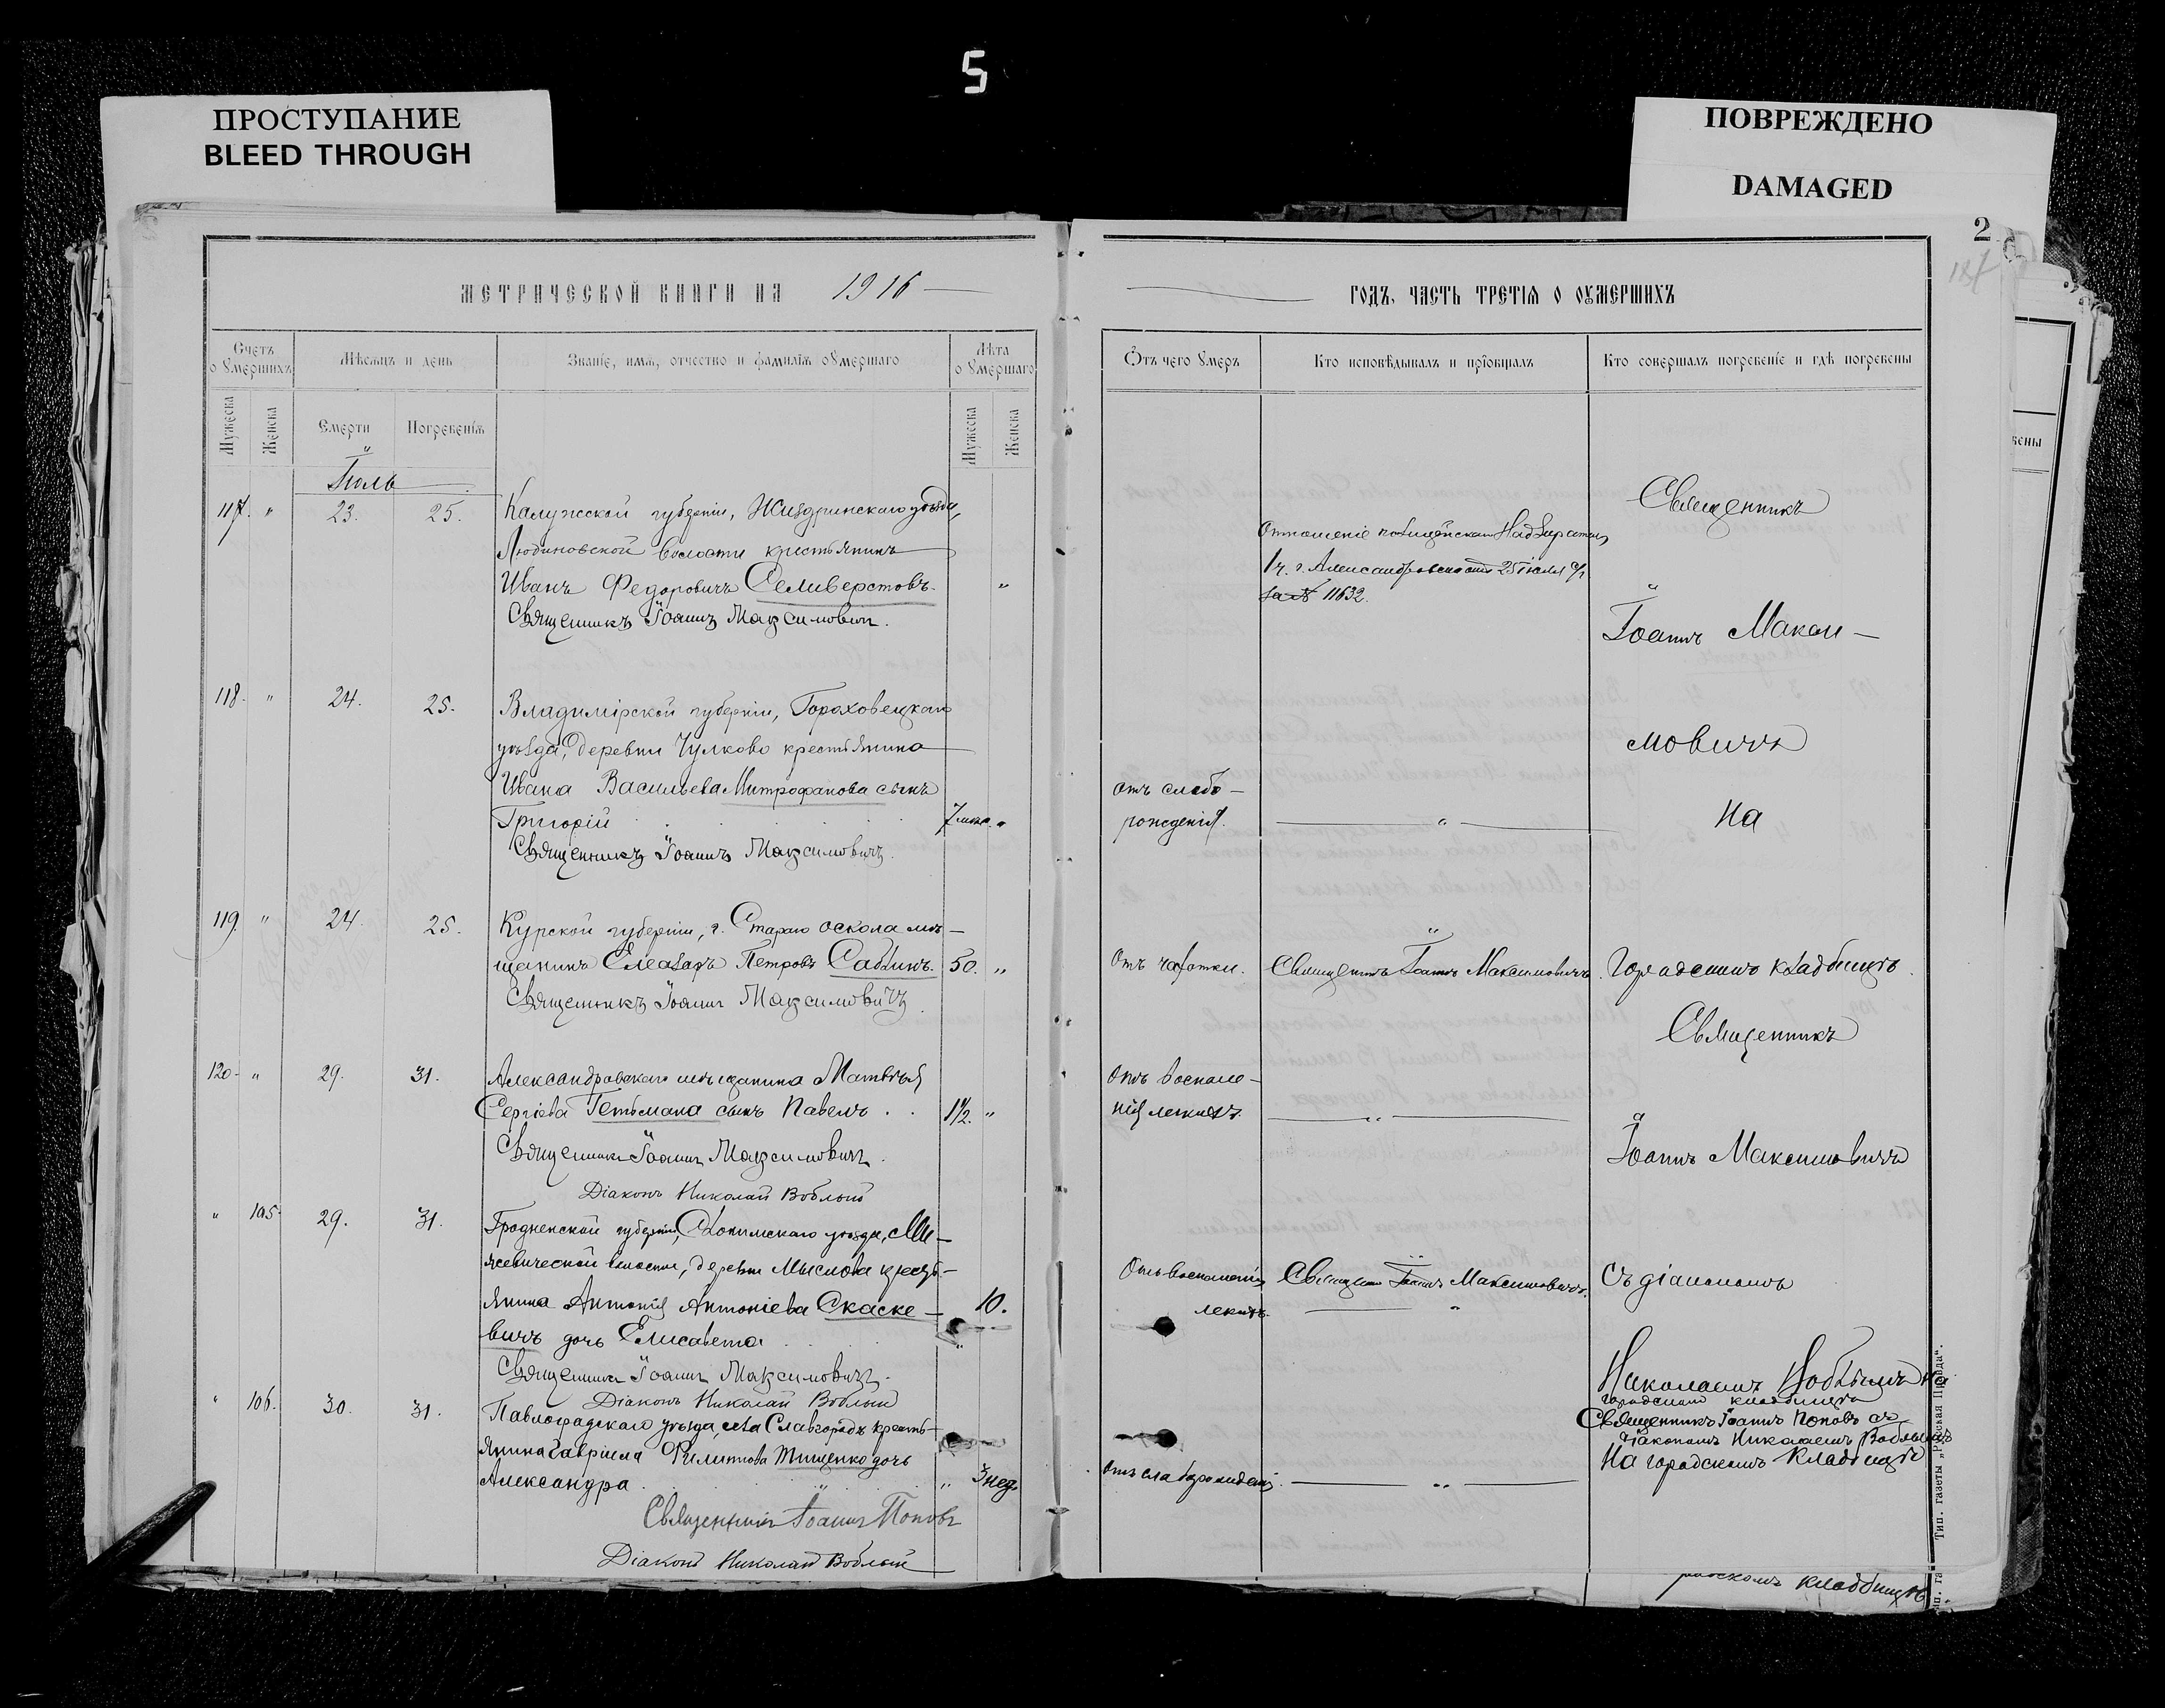 5
ПРОСТУПАНИЕ
BLEED THROUGH
ПОВРЕЖДЕНО
DAMAGED
2
МЕТРИЧЕСКОЙ КНИГИ НА 1916
Счетъ оумершихъ
Мѣсяцъ и день
Званіе, имя, отчество и фамилія оумершаго
Лѣта оумершаго
Мужеска
Женска
Смерти
Погребенія
Мужеска
Женска
Іюль
117. " 23. 25. Калужской губерніи, Жиздринскаго уѣзда,
Людиновской волости крестьянинъ
Иванъ Федоровичъ Селиверстовъ. "
Священникъ Іоаннъ Максимовичъ.
118. " 24. 25. Владимірской губерніи, Гороховецкаго
уѣзда, деревни Чулково крестьянина
Ивана Васильева Митрофанова сынъ
Григорій 7 "
Священникъ Іоаннъ Максимовичъ.
119. " 24. 25. Курской губерніи, г. Стараго Оскола мѣ-
щанинъ Елеазаръ Петровъ Саблинъ. 50. "
Священникъ Іоаннъ Максимовичъ.
120. " 29. 31. Александровскаго мѣщанина Матвѣя
Сергіева Гетьмана сынъ Павелъ . . 1 1/2. "
Священникъ Іоаннъ Максимовичъ.
Діаконъ Николай Воблый
" 105. 29. 31. Гродненской губерніи, Слонимскаго уѣзда, Ми-
волости, деревни Мыслова кресть-
янина Антонія Антоніева Скаске- 10.
вичъ дочь Елисавета "
Священникъ Іоаннъ Максимовичъ.
Діаконъ Николай Воблый
" 106. 30. 31. Павлоградскаго уѣзда, села Славгорода кресть-
янина Гавріила Филиппова Тищенко дочь
Александра " 3 нед.
Священникъ Іоаннъ Поповъ
Діаконъ Николай Воблый
ГОДЪ, ЧАСТЬ ТРЕТІЯ О ОУМЕРШИХЪ
Отъ чего умеръ
Кто исповѣдывалъ и пріобщалъ
Кто совершалъ погребеніе и гдѣ погребены
Священникъ
Отношеніе полицейскаго Надзирателя
1 ч. г. Александровска отъ 25 іюля с/г
за № 11632.
Іоаннъ Макси-
мовичъ
отъ слабо-
рожденія. " на
Отъ чахотки. Священникъ Іоаннъ Максимовичъ. Городскомъ кладбищѣ.
Священникъ
Отъ воспале-
нія легкихъ. "
Іоаннъ Максимовичъ
Отъ воспаленія Священникъ Іоаннъ Максимовичъ. Съ діакономъ
легкихъ. "
Николаемъ Воблымъ на
городскомъ кладбищѣ
Священникъ Іоаннъ Поповъ съ
діакономъ Николаемъ Воблымъ
На городскомъ кладбищѣ
Отъ слаборожденія. "
Тип. газеты „Русская Правда".
кладбищѣ
вены